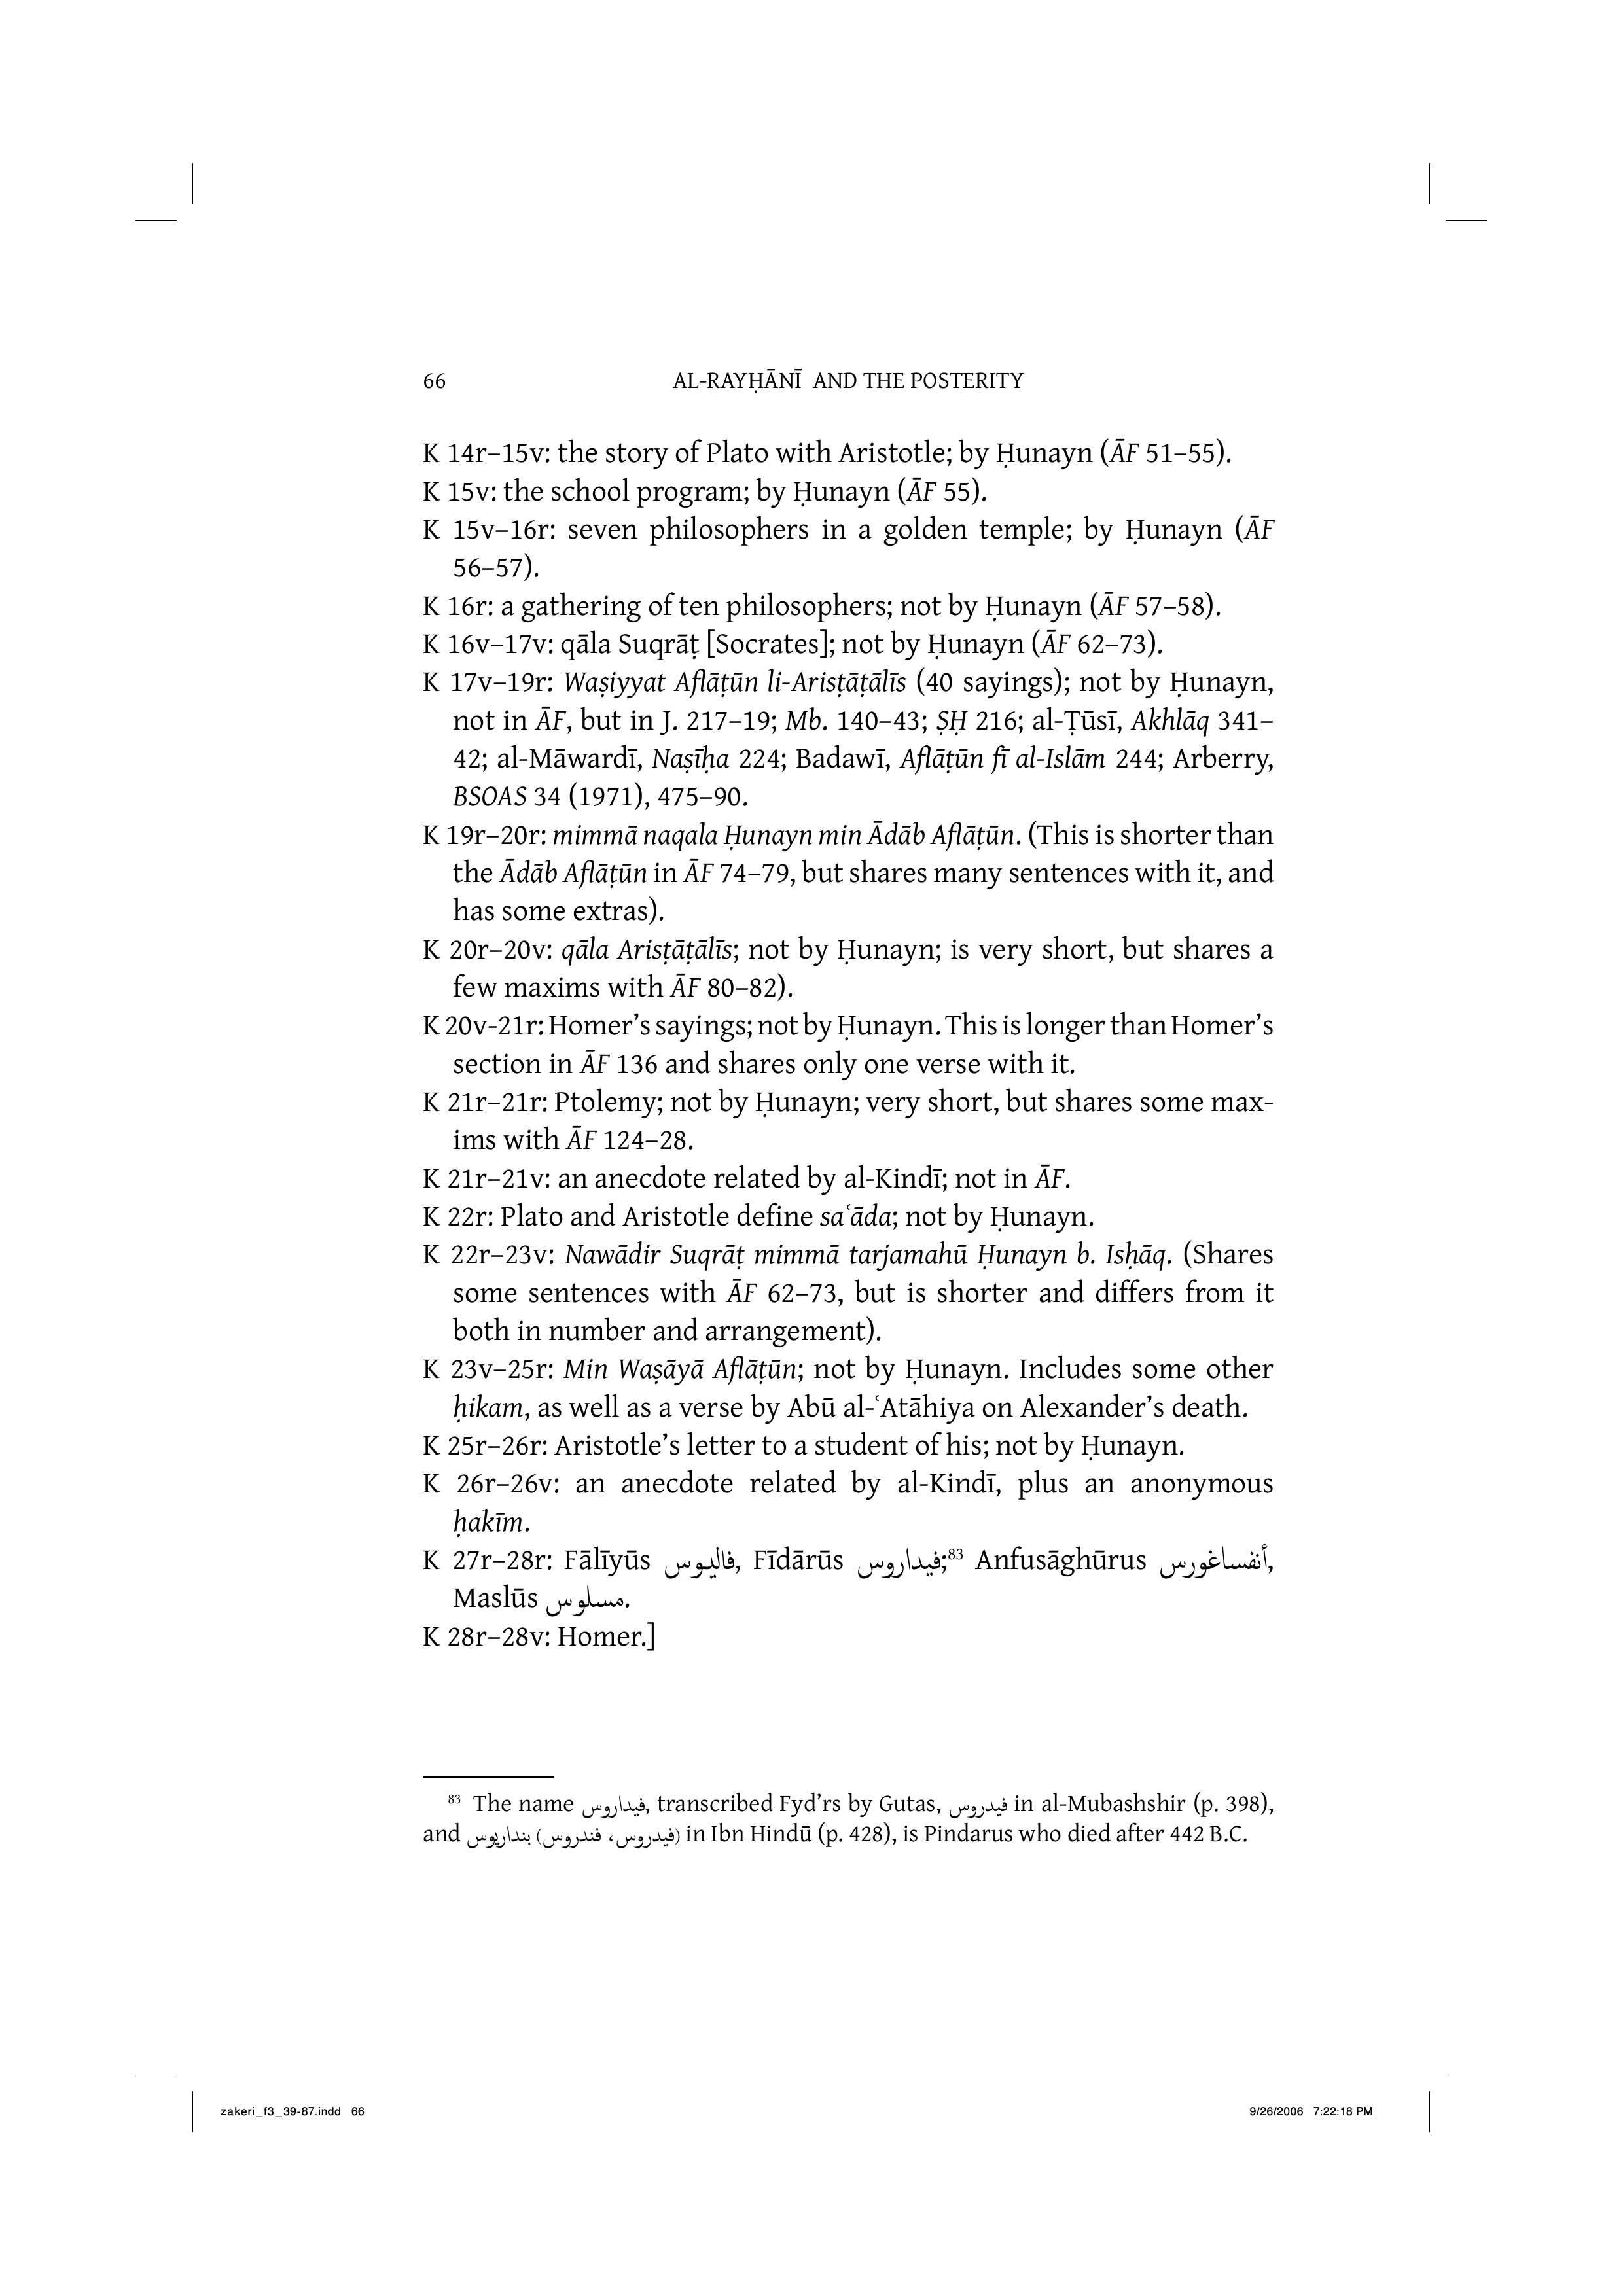 66 AL-RAYḤĀNĪ AND THE POSTERITY
K 14r–15v: the story of Plato with Aristotle; by Ḥunayn (ĀF 51–55).
K 15v: the school program; by Ḥunayn (ĀF 55).
K 15v–16r: seven philosophers in a golden temple; by Ḥunayn (ĀF
56–57).
K 16r: a gathering of ten philosophers; not by Ḥunayn (ĀF 57–58).
K 16v–17v: qāla Suqrāṭ [Socrates]; not by Ḥunayn (ĀF 62–73).
K 17v–19r: Waṣiyyat Aflāṭūn li-Arisṭāṭālīs (40 sayings); not by Ḥunayn,
not in ĀF, but in J. 217–19; Mb. 140–43; ṢḤ 216; al-Ṭūsī, Akhlāq 341–
42; al-Māwardī, Naṣīḥa 224; Badawī, Aflāṭūn fī al-Islām 244; Arberry,
BSOAS 34 (1971), 475–90.
K 19r–20r: mimmā naqala Ḥunayn min Ādāb Aflāṭūn. (This is shorter than
the Ādāb Aflāṭūn in ĀF 74–79, but shares many sentences with it, and
has some extras).
K 20r–20v: qāla Arisṭāṭālīs; not by Ḥunayn; is very short, but shares a
few maxims with ĀF 80–82).
K 20v-21r: Homer’s sayings; not by Ḥunayn. This is longer than Homer’s
section in ĀF 136 and shares only one verse with it.
K 21r–21r: Ptolemy; not by Ḥunayn; very short, but shares some max-
ims with ĀF 124–28.
K 21r–21v: an anecdote related by al-Kindī; not in ĀF.
K 22r: Plato and Aristotle define saʿāda; not by Ḥunayn.
K 22r–23v: Nawādir Suqrāṭ mimmā tarjamahū Ḥunayn b. Isḥāq. (Shares
some sentences with ĀF 62–73, but is shorter and differs from it
both in number and arrangement).
K 23v–25r: Min Waṣāyā Aflāṭūn; not by Ḥunayn. Includes some other
ḥikam, as well as a verse by Abū al-ʿAtāhiya on Alexander’s death.
K 25r–26r: Aristotle’s letter to a student of his; not by Ḥunayn.
K 26r–26v: an anecdote related by al-Kindī, plus an anonymous
ḥakīm.
K 27r–28r: Fālīyūs فاليوس, Fīdārūs فيداروس;83 Anfusāghūrus أنفساغورس,
Maslūs مسلوس.
K 28r–28v: Homer.]
83 The name فيداروس, transcribed Fyd’rs by Gutas, فيدروس in al-Mubashshir (p. 398),
and بنداريوس (فيدروس، فندروس) in Ibn Hindū (p. 428), is Pindarus who died after 442 B.C.
zakeri_f3_39-87.indd 66 9/26/2006 7:22:18 PM